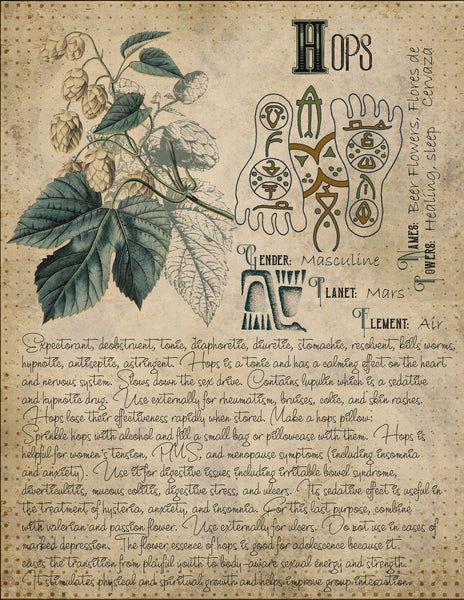 Hops
Names: Beer Flowers, Flores de
Cervaza
Powers: Healing, sleep
Gender: Masculine
Planet: Mars
Element: Air
Expectorant, deobstruent, tonic, diaphoretic, diuretic, stomachic, resolvent, kills worms,
hypnotic, antiseptic, astringent. Hops is a tonic and has a calming effect on the heart
and nervous system. Slows down the sex drive. Contains lupulin which is a sedative
and hypnotic drug. Use externally for rheumatism, bruises, colic, and skin rashes.
Hops lose their effectiveness rapidly when stored. Make a hops pillow:
Sprinkle hops with alcohol and fill a small bag or pillowcase with them. Hops is
helpful for women's tension, PMS, and menopause symptoms (including insomnia
and anxiety). Use it for digestive issues including irritable bowel syndrome,
diverticulitis, mucous colitis, digestive stress, and ulcers. Its sedative effect is useful in
the treatment of hysteria, anxiety, and insomnia. For this last purpose, combine
with valerian and passion flower. Use externally for ulcers. Do not use in cases of
marked depression. The flower essence of hops is good for adolescence because it
eases the transition from playful youth to body-aware sexual energy and strength.
It stimulates physical and spiritual growth and helps improve group interaction.